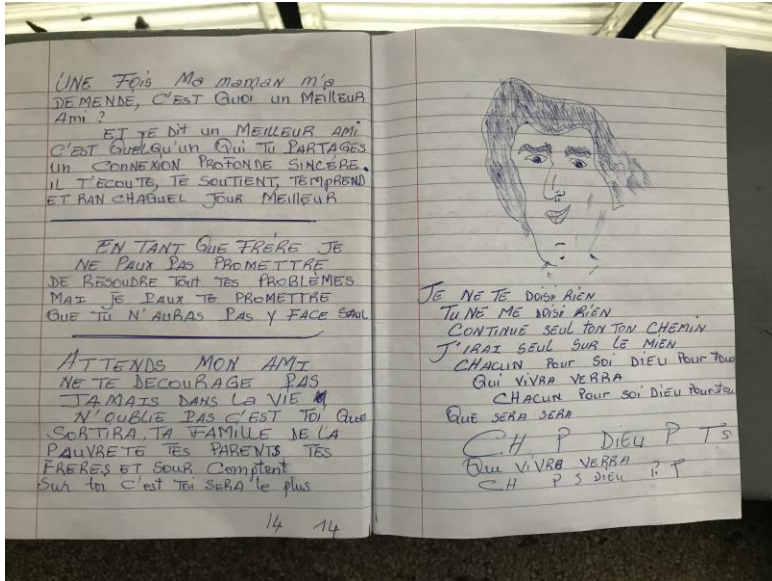 UNE FOIS MA MAMAN M'A
DEMENDE, C'EST QUOI UN MEILLEUR
AMI ?
ET JE DIT UN MEILLEUR AMI
C'EST QUELQU'UN QUI TU PARTAGES
UN CONNEXION PROFONDE SINCÉRE.
IL T'ECOUTE, TE SOUTIENT, TEMPREND
ET RAN CHAQUEL JOUR MEILLEUR
EN TANT QUE FRÉRE JE
NE PAUX PAS PROMETTRE
DE RESOUDRE TOUT TES PROBLÈMES
MAI JE PAUX TE PROMETTRE
QUE TU N'AURAS PAS Y FACE SAUL
ATTENDS MON AMI
NE TE DECOURAGE PAS
JAMAIS DANS LA VIE
N'OUBLIE PAS C'EST TOI QUE
SORTIRA, TA FAMILLE DE LA
PAUVRETE TES PARENTS TES
FRERES ET SOUR Comptent
Sur toi C'est Toi SERA le plus
14 14
JE NE TE DOISI RIEN
TU NE ME DOISI RIEN
CONTINUE SEUL TON TON CHEMIN
J'IRAI SEUL SUR LE MIEN
CHACUN POUR SOI DIEU POUR TOU
QUI VIVRA VERRA
CHACUN POUR SOI DIEU POUR TOU
QUE SERA SERA
CH P DIEU P TS
QUI VIVRA VERRA
CH P S DIEU P T